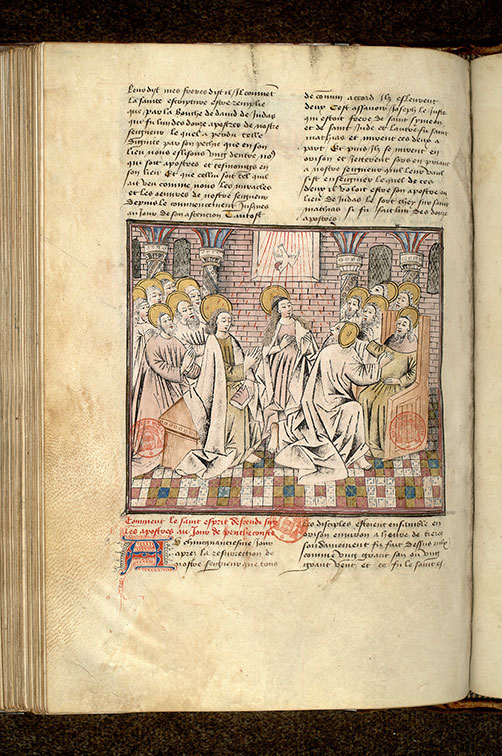 leur dyt mes freres dyst il / Il convient
la sainte escripture estre remplie
que par la bouche de david de Judas
qui fu lun des douze apostres de nostre
seigneur le quel a perdu celle
dignite par son peche que en son
lieu nous eslisons ung dentre nos
qui soit apostres et tesmoings en
son lieu Et que cellui soit tel quil
ait veu comme nous les miracles
et les oeuvres de nostre seigneur
depuis le commencement Jusques
au Jour de son ascencion Tantost
de commun accord Ilz eslevrent
deux Cest assavoir Joseph le Juste
qui estoit frere de saint symeon
et de saint Jude et lautre fu saint
mathias et mirent ces deux a
part Et puis Ilz se mirent en
orison et Jecterent sors en priant
a nostre seigneur quil leur vaul
sist enseignier le quel de ces
deux il voloit estre son apostre ou
lieu de Judas le sort chey sur saint
mathias si fu fait lun des douze
apostres
Comment le saint esprit descendi sur
les apostres au Jour de penthecouste
Au chincquantiesme Jour
apres la resurection de
nostre seigneur que tous
les disciples estoient ensamble en
orison environ a heure de tierce
soudainement fu fait dessus eulx
comme ung grant son ou ung
grant vent et ce fu le saint es